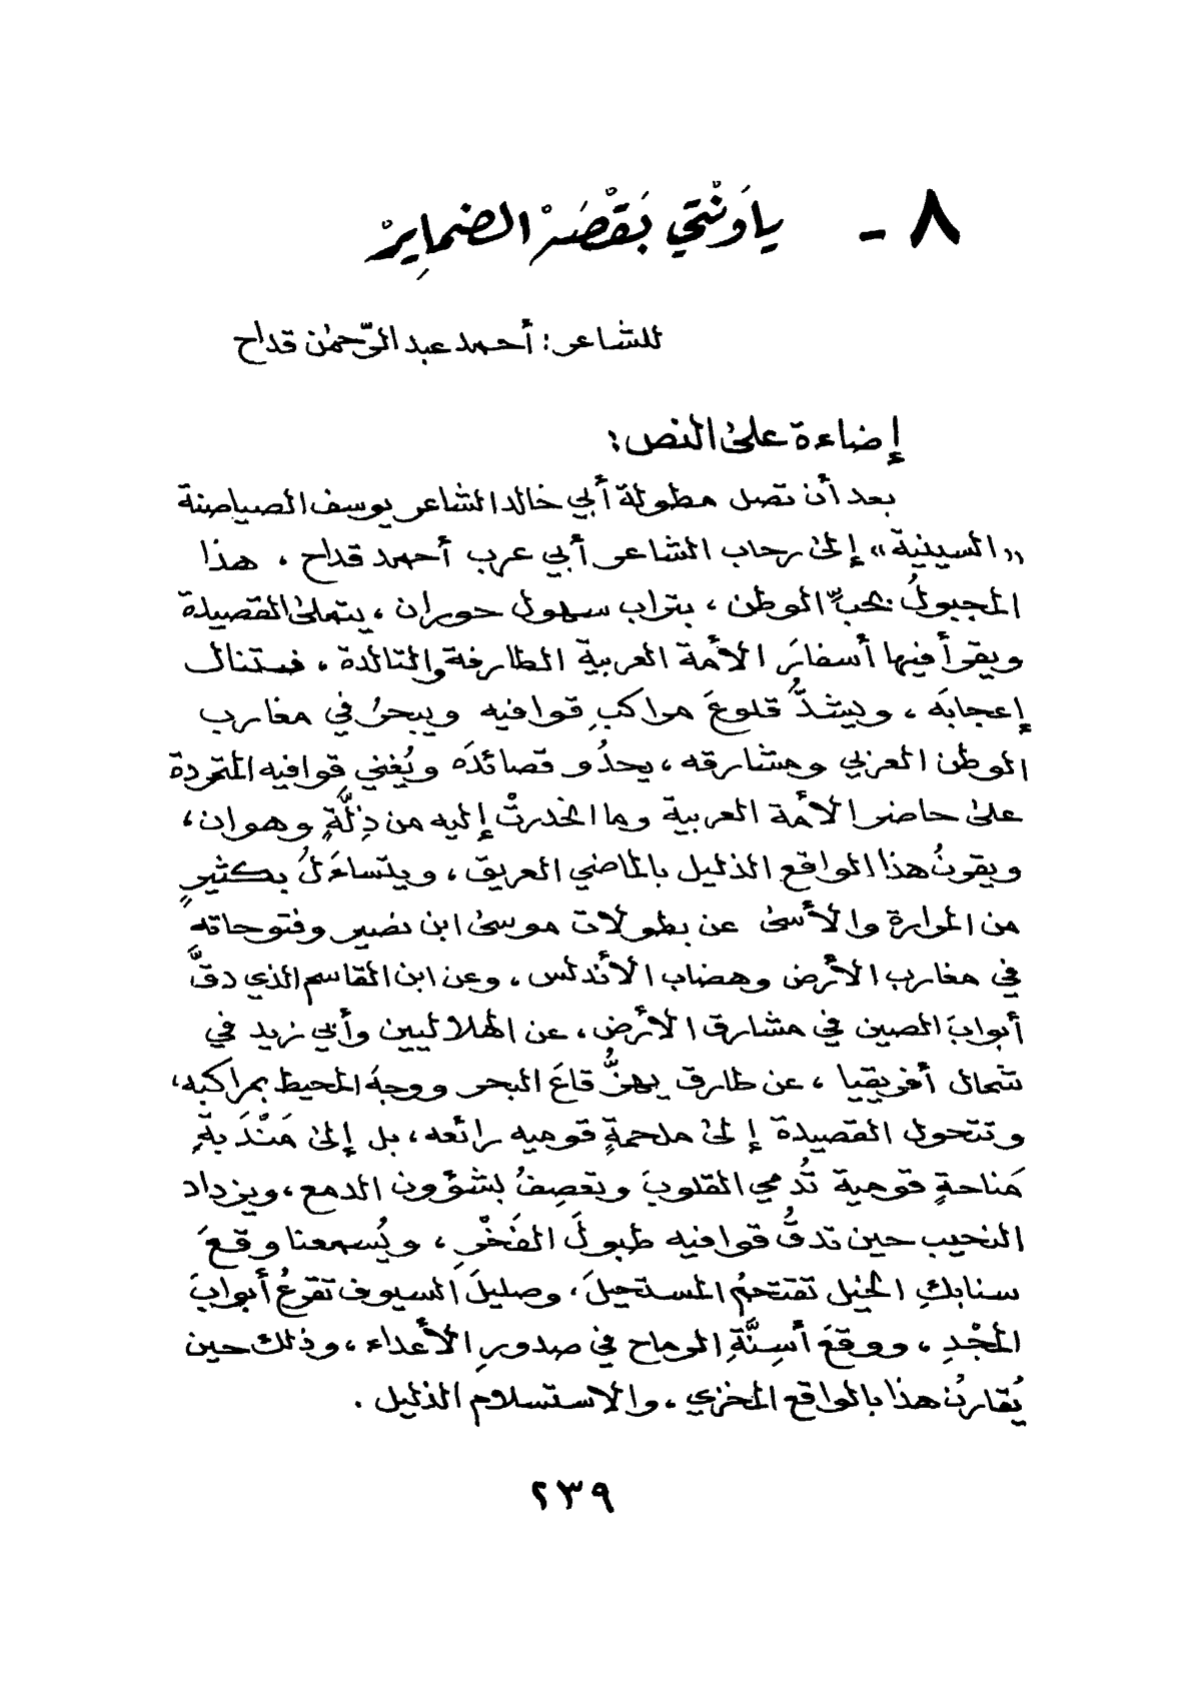 ٨ - ياوَنْتي بَقْصَىْ الضمايِرْ
للشاعر: أحمد عبد الرّحمٰن قداح
إضاءة علىٰ النص:
بعد أن تصل مطولة أبي خالد الشاعر يوسف الصياصنة
«السينية» إلىٰ رحاب الشاعر أبي عرب أحمد قداح، هذا
المجبولُ بحُبِّ الوطن، بتراب سهول حوران، يتملىٰ القصيدة
ويقرأ فيها أسفارَ الأمة العربية الطارفة والتالدة، فستنال
إعجابَه، ويشدُّ قلوعَ مراكبِ قوافيه ويبحرُ في مغارب
الوطن العربي ومشارقه، يحدُو قصائدَه ويُغني قوافيه المتمردة
علىٰ حاضر الأمة العربية وما انحدرتْ إليه من ذِلَّةٍ وهوان،
ويقرنُ هذا الواقع الذليل بالماضي العريق، ويتساءَلُ بكثيرٍ
من المرارة والأسىٰ عن بطولات موسىٰ ابن نصير وفتوحاته
في مغارب الأرض وهضاب الأندلس، وعن ابن القاسم الذي دقَّ
أبوابَ الصين في مشارق الأرض، عن الهلاليين وأبي زيد في
شمال أفريقيا، عن طارق يهزُّ قاعَ البحر ووجهَ المحيط بمراكبه،
وتتحول القصيدة إلىٰ ملحمةٍ قوميه رائعه، بل إلىٰ مَنْدَبةٍ
مَناحةٍ قومية تُدمي القلوبَ وتعصِفُ بشؤون الدمع، ويزداد
النحيب حين تدقُّ قوافيه طبولَ الفَخْرِ، ويُسمعنا وقعَ
سنابكِ الخيل تقتحمُ المستحيلَ، وصليلَ السيوف تقرعُ أبوابَ
المجْدِ، ووقعَ أسِنَّةِ الرماح في صدورِ الأعداء، وذلك حين
يُقارنُ هذا بالواقع المخزي، والاستسلام الذليل.
٢٣٩